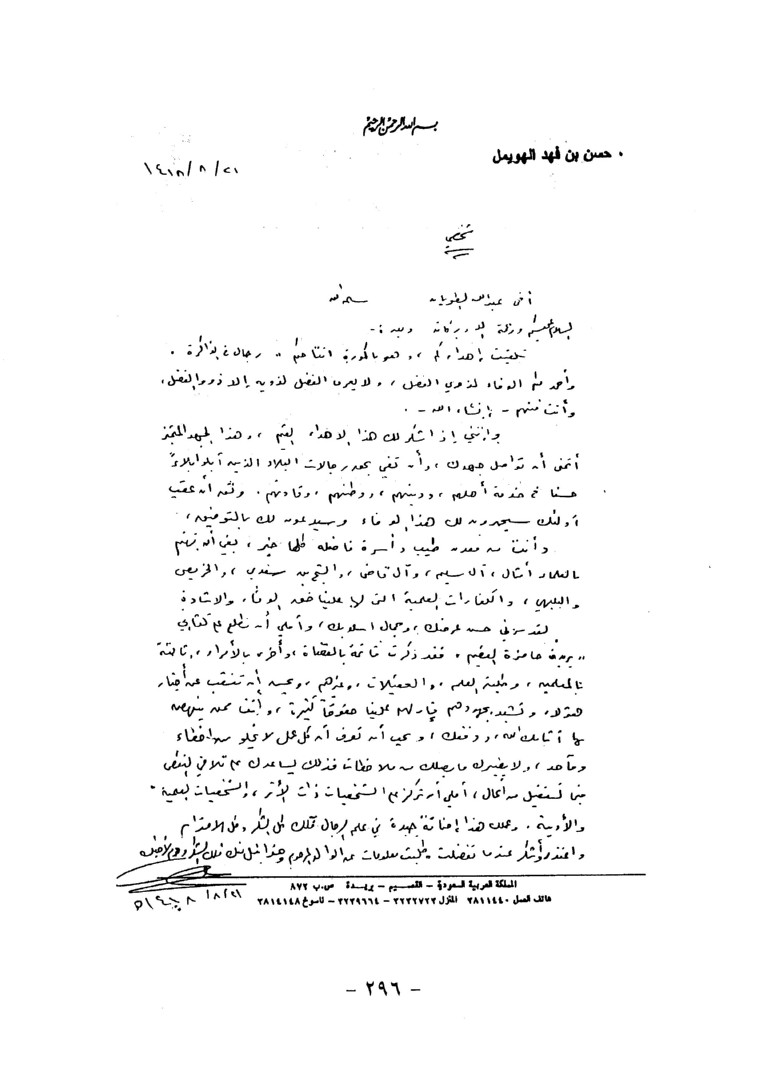 بسم الله الرحمن الرحيم
حسن بن فهد الهويمل
٢١ / ٨ / ١٤١٨
شخصي
أخي عبدالله الطويان سلمه الله
السلام عليكم ورحمة الله وبركاته وبعد :-
تلقيت إهداءكم ، وهو باكورة انتاجكم " رجال في الذاكرة .
وأحمد لكم الوفاء لذوي الفضل ، ولا يعرف الفضل لذويه إلا ذوو الفضل ،
وأنت منهم - إنشاء الله - .
وإنني إذ اشكر لك هذا الاهداء القيم ، وهذا الجهد المتميز
أتمنى أن تواصل جهودك ، وأن تفي بحق رجالات البلاد الذين أبلوا بلاءً
حسنا في خدمة أهلهم ، ودينهم ، ووطنهم ، وقادتهم . وثق أن عقب
أولئك سيحمدون لك هذا الوفاء وسيدعون لك بالتوفيق ،
وأنت من معدن طيب وأسرة فاضلة كلها خير ، بقي أن تهتم
بالعلماء أمثال ، آل سليم ، وآل قاضي ، والشيخ بن سعدي ، والخريصي
والبليهي ، والكفاءات العلمية التي لها علينا حق الوفاء والاشادة
لقد سرني حسن عرضك ، وجمال اسلوبك ، وأملي أن تطلع على كتابي
" بريدة حاضرة القصيم . فقد ذكرت قائمة بالقضاة ، وأخرى بالأمراء ، وثالثة
بالمعلمين ، وطلبة العلم ، والعقيلات ، وغيرهم ، وعسى أن تنقب عن أخبار
هؤلاء وتشيد بجهودهم فإن لهم علينا حقوقاً كثيرة ، وأنت ممن ينهض
بها أثابك الله ، ووفقك ، ويجب أن تعرف أن كل عمل لا يخلو من اخطاء
ومآخذ ، ولا يضيرك ما يصلك من ملاحظات فذلك يساعدك على تلافي النقص
فيما تستقبل من أعمال ، أملي أن تركز على الشخصيات ذات الأثر ، والشخصيات العلمية
والأدبية . وعملك هذا إضافة جيدة في علم الرجال فلك كل الشكر وكل الاحترام
واعتذر وأشكر عندما تفضلت وطلبت معلومات عن الوالد المرحوم
٢١ / ٨ / ١٤١٨ هـ
المملكة العربية السعودية - القصيم - بريدة ص.ب ٨٧٢
هاتف العمل ٣٨١١٤٤٠ المنزل ٣٢٣٢٧٢٢ - ٣٢٣٩٦٦٤ - ناسوخ ٣٨١٤١٤٨
- ٢٩٦ -